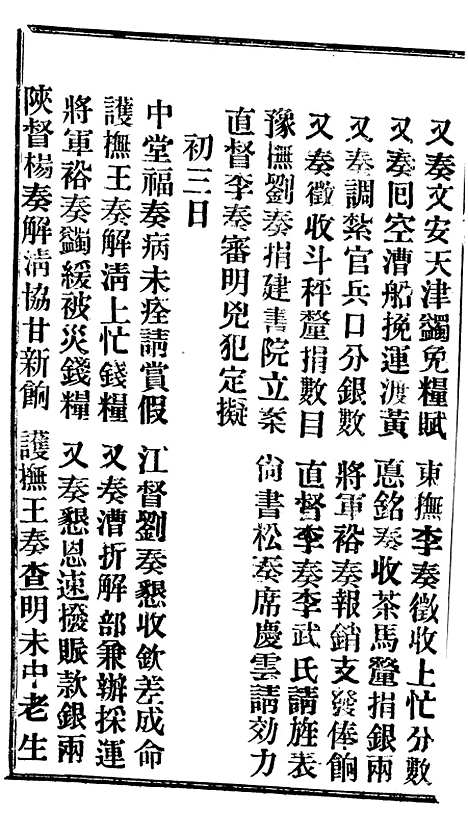 又奏文安天津蠲免糧賦　東撫李奏徵收上忙分數
又奏回空漕船挽運渡黃　惪銘奏收茶馬釐捐銀兩
又奏調紮官兵口分銀數　將軍裕奏報銷支發俸餉
又奏徵收斗秤釐捐數目　直督李奏李武氏請旌表
豫撫劉奏捐建書院立案　尙書松奏席慶雲請効力
直督李奏審明兇犯定擬
初三日
中堂福奏病未痊請賞假　江督劉奏懇收欽差成命
護撫王奏解淸上忙錢糧　又奏漕折解部兼辦採運
將軍裕奏蠲緩被災錢糧　又奏懇恩速撥賑款銀兩
陝督楊奏解淸協甘新餉　護撫王奏查明未中老生